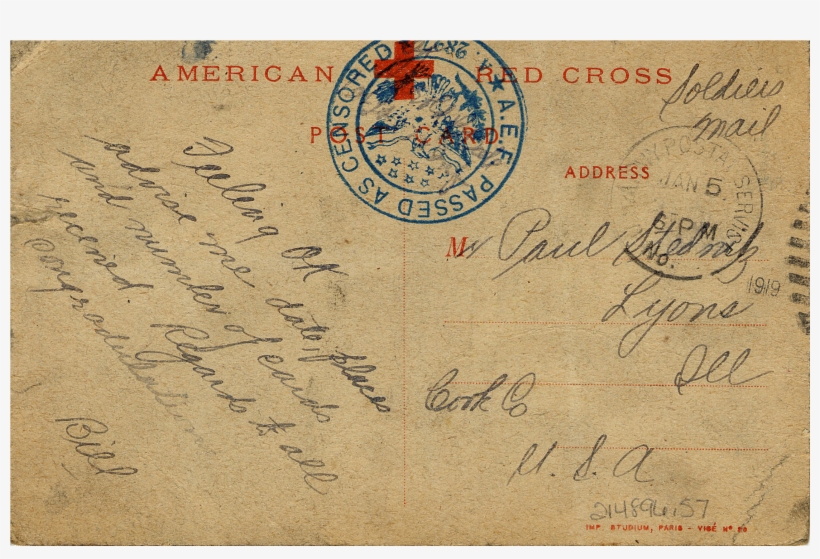 AMERICAN RED CROSS
POST CARD
A.E.F. PASSED AS CENSORED
Soldiers
mail
ADDRESS
POSTAL SERVICE
JAN 5
6 PM
No.
1919
Feeling OK
advise me date, places
and number of cards
received. Regards to all
Congradulations
Bill
Mr Paul
Lyons
Ill
Cook Co
U. S. A.
214894.57
IMP. STUDIUM, PARIS - VISÉ Nº